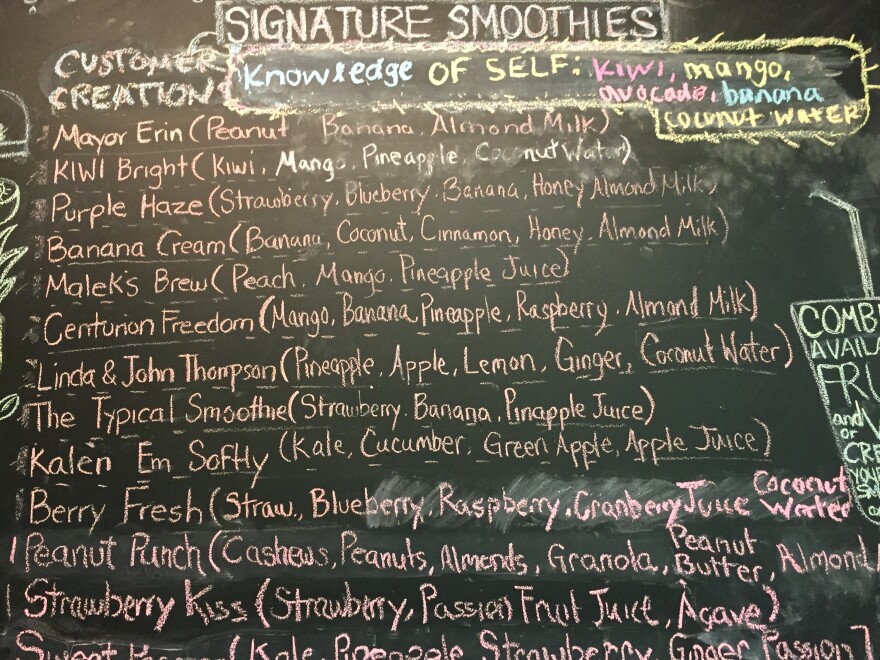 SIGNATURE SMOOTHIES
CUSTOMER
CREATION
Knowledge OF SELF: KIWI, mango,
avocado, banana
COCONUT WATER
Mayor Erin (Peanut Banana, Almond Milk)
KIWI Bright (Kiwi, Mango, Pineapple, Coconut Water)
Purple Haze (Strawberry, Blueberry, Banana, Honey Almond Milk)
Banana Cream (Banana, Coconut, Cinnamon, Honey, Almond Milk)
Malek's Brew (Peach, Mango, Pineapple Juice)
Centurion Freedom (Mango, Banana, Pineapple, Raspberry, Almond Milk)
Linda & John Thompson (Pineapple, Apple, Lemon, Ginger, Coconut Water)
The Typical Smoothie (Strawberry, Banana, Pinapple Juice)
Kalen Em Softly (Kale, Cucumber, Green Apple, Apple Juice)
Berry Fresh (Straw., Blueberry, Raspberry, Cranberry Juice Cocounut Warter
Peanut Punch (Cashews, Peanuts, Almonds, Granola, Peanut Butter, Almond
Strawberry Kiss (Strawberry, Passion Fruit Juice, Agave)
Sweet (Kale, Pineapple, Strawberry, Ginger Passion
COMB
AVAILA
FRU
and
or
CRE
YOUR